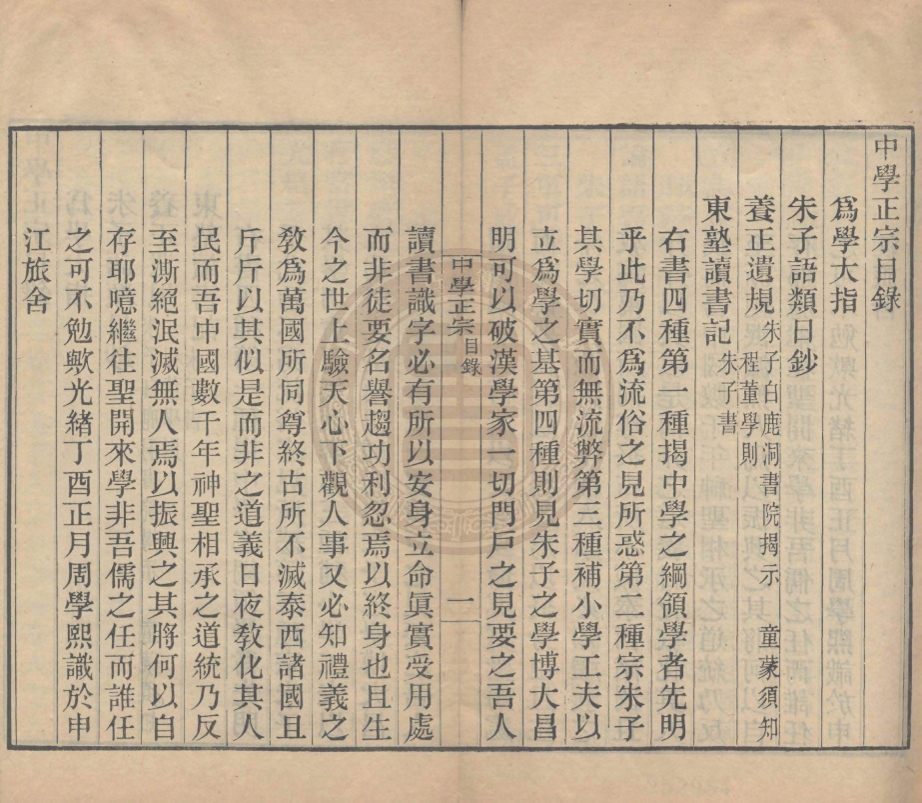 中學正宗目錄
爲學大指
朱子語類日鈔
養正遺規 朱子白鹿洞書院揭示 童蒙須知
程董學則
東塾讀書記 朱子書
右書四種第一種揭中學之綱領學者先明
乎此乃不爲流俗之見所惑第二種宗朱子
其學切實而無流弊第三種補小學工夫以
立爲學之基第四種則見朱子之學博大昌
明可以破漢學家一切門戶之見要之吾人
中學正宗 目錄 一
讀書識字必有所以安身立命眞實受用處
而非徒要名譽趨功利忽焉以終身也且生
今之世上驗天心下觀人事又必知禮義之
敎爲萬國所同尊終古所不滅泰西諸國且
斤斤以其似是而非之道義日夜敎化其人
民而吾中國數千年神聖相承之道統乃反
至澌絕泯滅無人焉以振興之其將何以自
存耶噫繼往聖開來學非吾儒之任而誰任
之可不勉歟光緖丁酉正月周學熙識於申
江旅舍